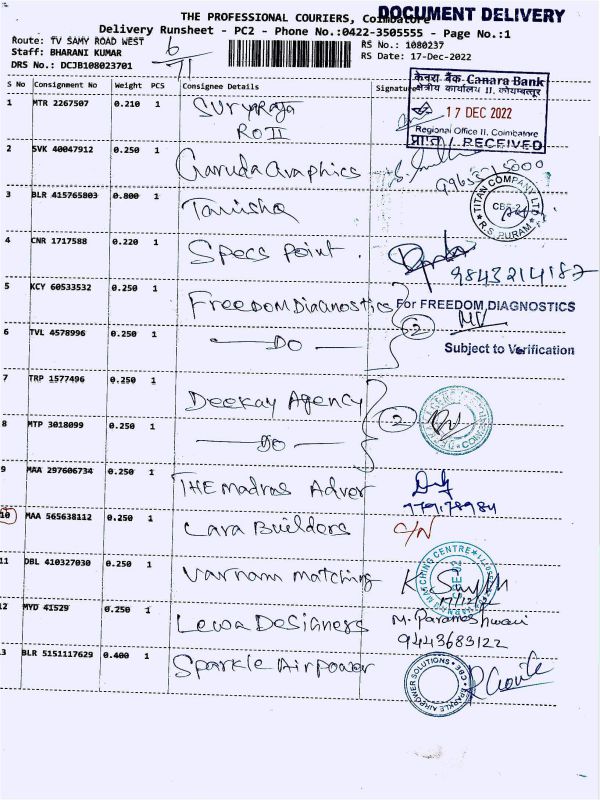 THE PROFESSIONAL COURIERS, Coimbatore
DOCUMENT DELIVERY
Delivery Runsheet - PC2 - Phone No.:0422-3505555 - Page No.:1
Route: TV SAMY ROAD WEST
Staff: BHARANI KUMAR
DRS No.: DCJB108023701
RS No.: 1080237
RS Date: 17-Dec-2022
S No Consignment No Weight PCS Consignee Details Signature
केनरा बैंक Canara Bank
क्षेत्रीय कार्यालय II, कोयम्बत्तूर
17 DEC 2022
Regional Office II, Coimbatore
प्राप्त / RECEIVED
1 MTR 2267507 0.210 1 Suryaraja
RO II
2 SVK 40047912 0.250 1 Garuda Graphics
3 BLR 415765803 0.800 1 Tanishq
TITAN COMPANY LTD
R.S. PURAM
4 CNR 1717588 0.220 1 Specs Point.
9843214187
5 KCY 60533532 0.250 1 Freedom Diagnostics
For FREEDOM DIAGNOSTICS
2
6 TVL 4578996 0.250 1 DO
Subject to Verification
7 TRP 1577496 0.250 1 Deekay Agency
2
8 MTP 3018099 0.250 1 DO
9 MAA 297606734 0.250 1 THE Madras Advor
10 MAA 565638112 0.250 1 Cara Builders C/N
11 DBL 410327030 0.250 1 Varnam matching
MATCHING CENTRE
17/12/22
12 MYD 41529 0.250 1 Lewa Designers
M. Parameshwari
9443683122
13 BLR 5151117629 0.400 1 Sparkle Airpower
SPARKLE AIRPOWER SOLUTIONS CBE